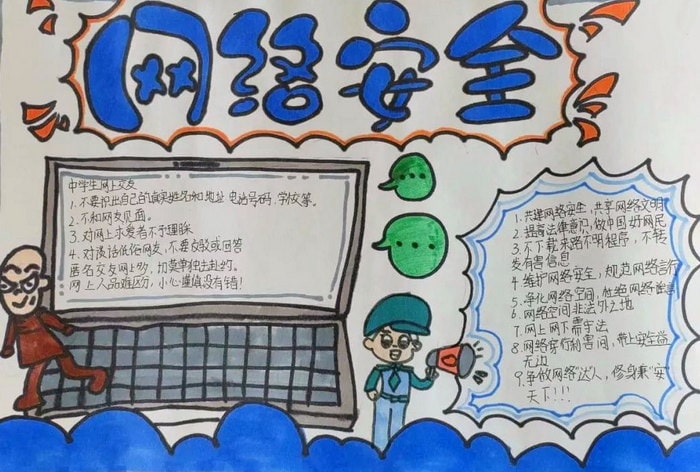 网络安全
中学生网上交友
1.不要说出自己的真实姓名和地址 电话号码、学校等。
2.不和网友见面。
3.对网上求爱者不予理睬
4.对谈话低俗网友,不要反驳或回答
匿名交友网上多,切莫单独去赴约。
网上人品难区分,小心谨慎没有错!
1.共建网络安全,共享网络文明
2.提高法律意识,做中国好网民
3.不下载来路不明程序,不转
发有害信息
4.维护网络安全,规范网络言行
5.净化网络空间,杜绝网络
6.网络空间非法外之地
7.网上网下需守法
8.网络穿行利害间,带上安全
无边
9.争做网络"达"人,修身兼"安"
天下!!!